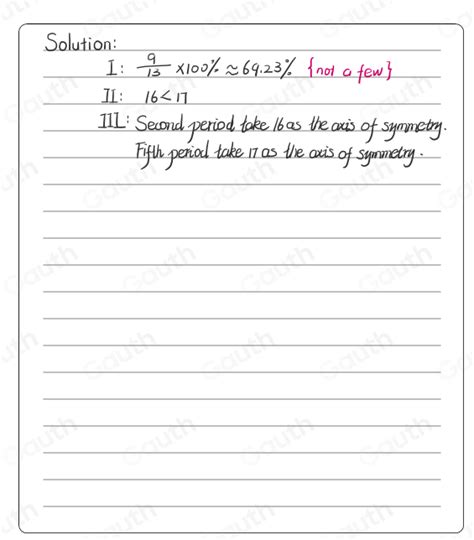 Solution:
I: 9/13 ×100% ≈ 69.23% {not a few}
II: 16<17
III: Second period take 16 as the axis of symmetry.
Fifth period take 17 as the axis of symmetry.
Gauth